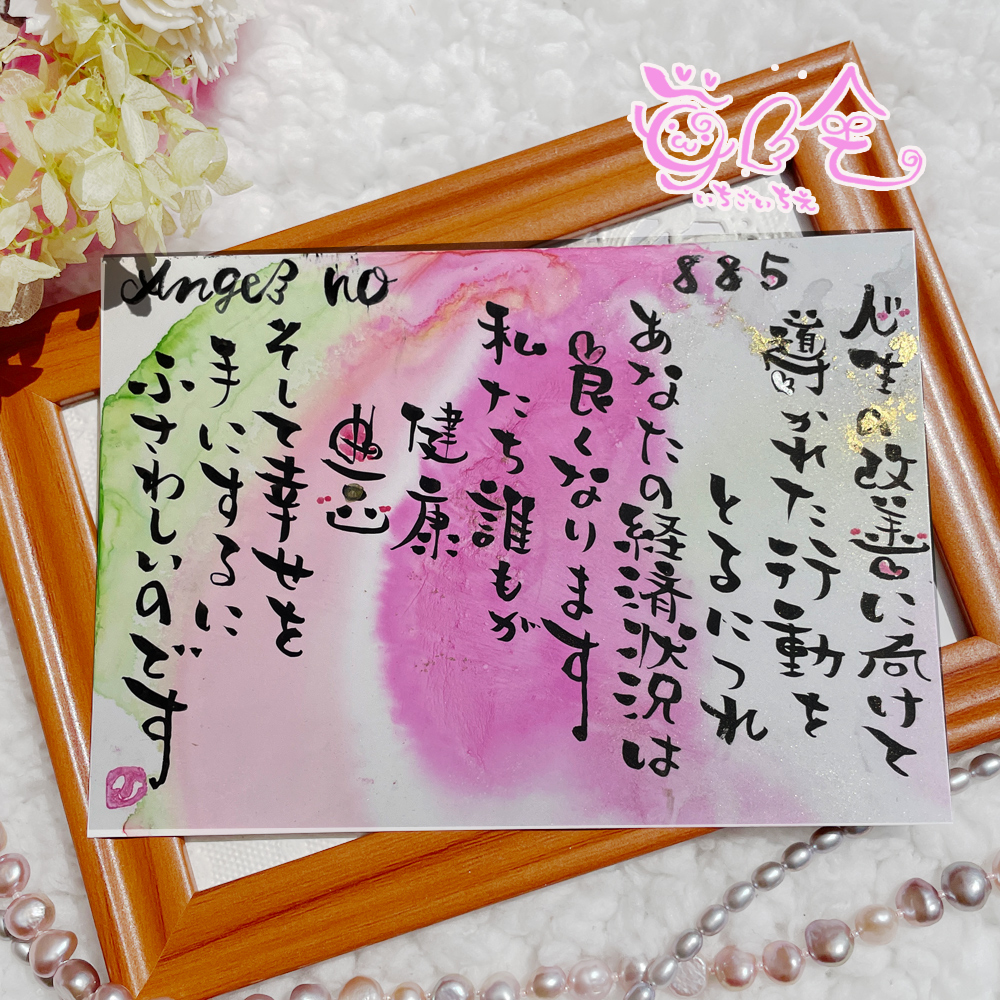 Angel no
885
人生の改善に向けて
導かれた行動を
とるにつれ
あなたの経済状況は
良くなります
私たち誰もが
健康
恵
そして幸せを
手にするに
ふさわしいのです
いちごいちえ